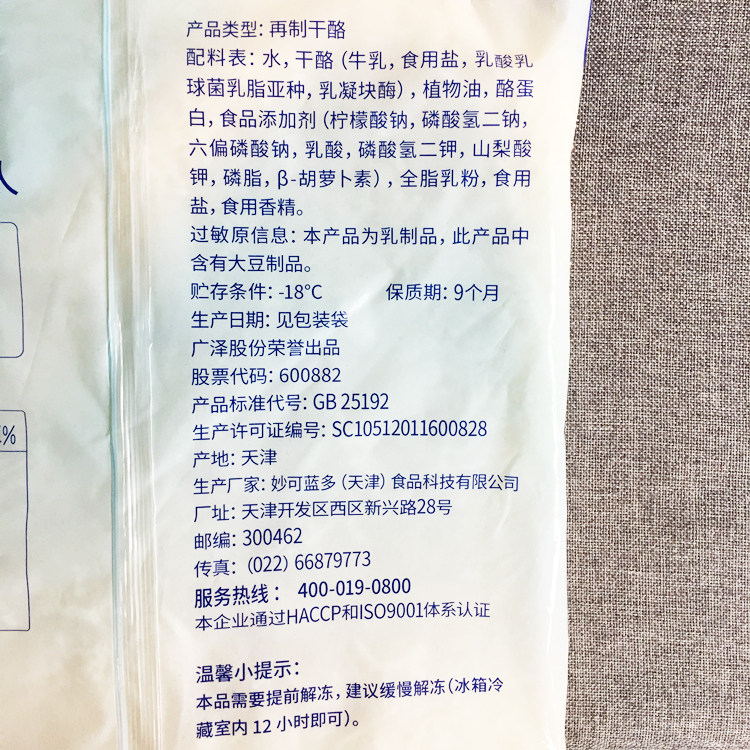 产品类型：再制干酪
配料表：水，干酪（牛乳，食用盐，乳酸乳
球菌乳脂亚种，乳凝块酶），植物油，酪蛋
白，食品添加剂（柠檬酸钠，磷酸氢二钠，
六偏磷酸钠，乳酸，磷酸氢二钾，山梨酸
钾，磷脂，β-胡萝卜素），全脂乳粉，食用
盐，食用香精。
过敏原信息：本产品为乳制品，此产品中
含有大豆制品。
贮存条件：-18°C 保质期：9个月
生产日期：见包装袋
广泽股份荣誉出品
股票代码：600882
产品标准代号：GB 25192
生产许可证编号：SC10512011600828
产地：天津
生产厂家：妙可蓝多（天津）食品科技有限公司
厂址：天津开发区西区新兴路28号
邮编：300462
传真：（022）66879773
服务热线： 400-019-0800
本企业通过HACCP和ISO9001体系认证
温馨小提示：
本品需要提前解冻，建议缓慢解冻（冰箱冷
藏室内 12 小时即可）。
%